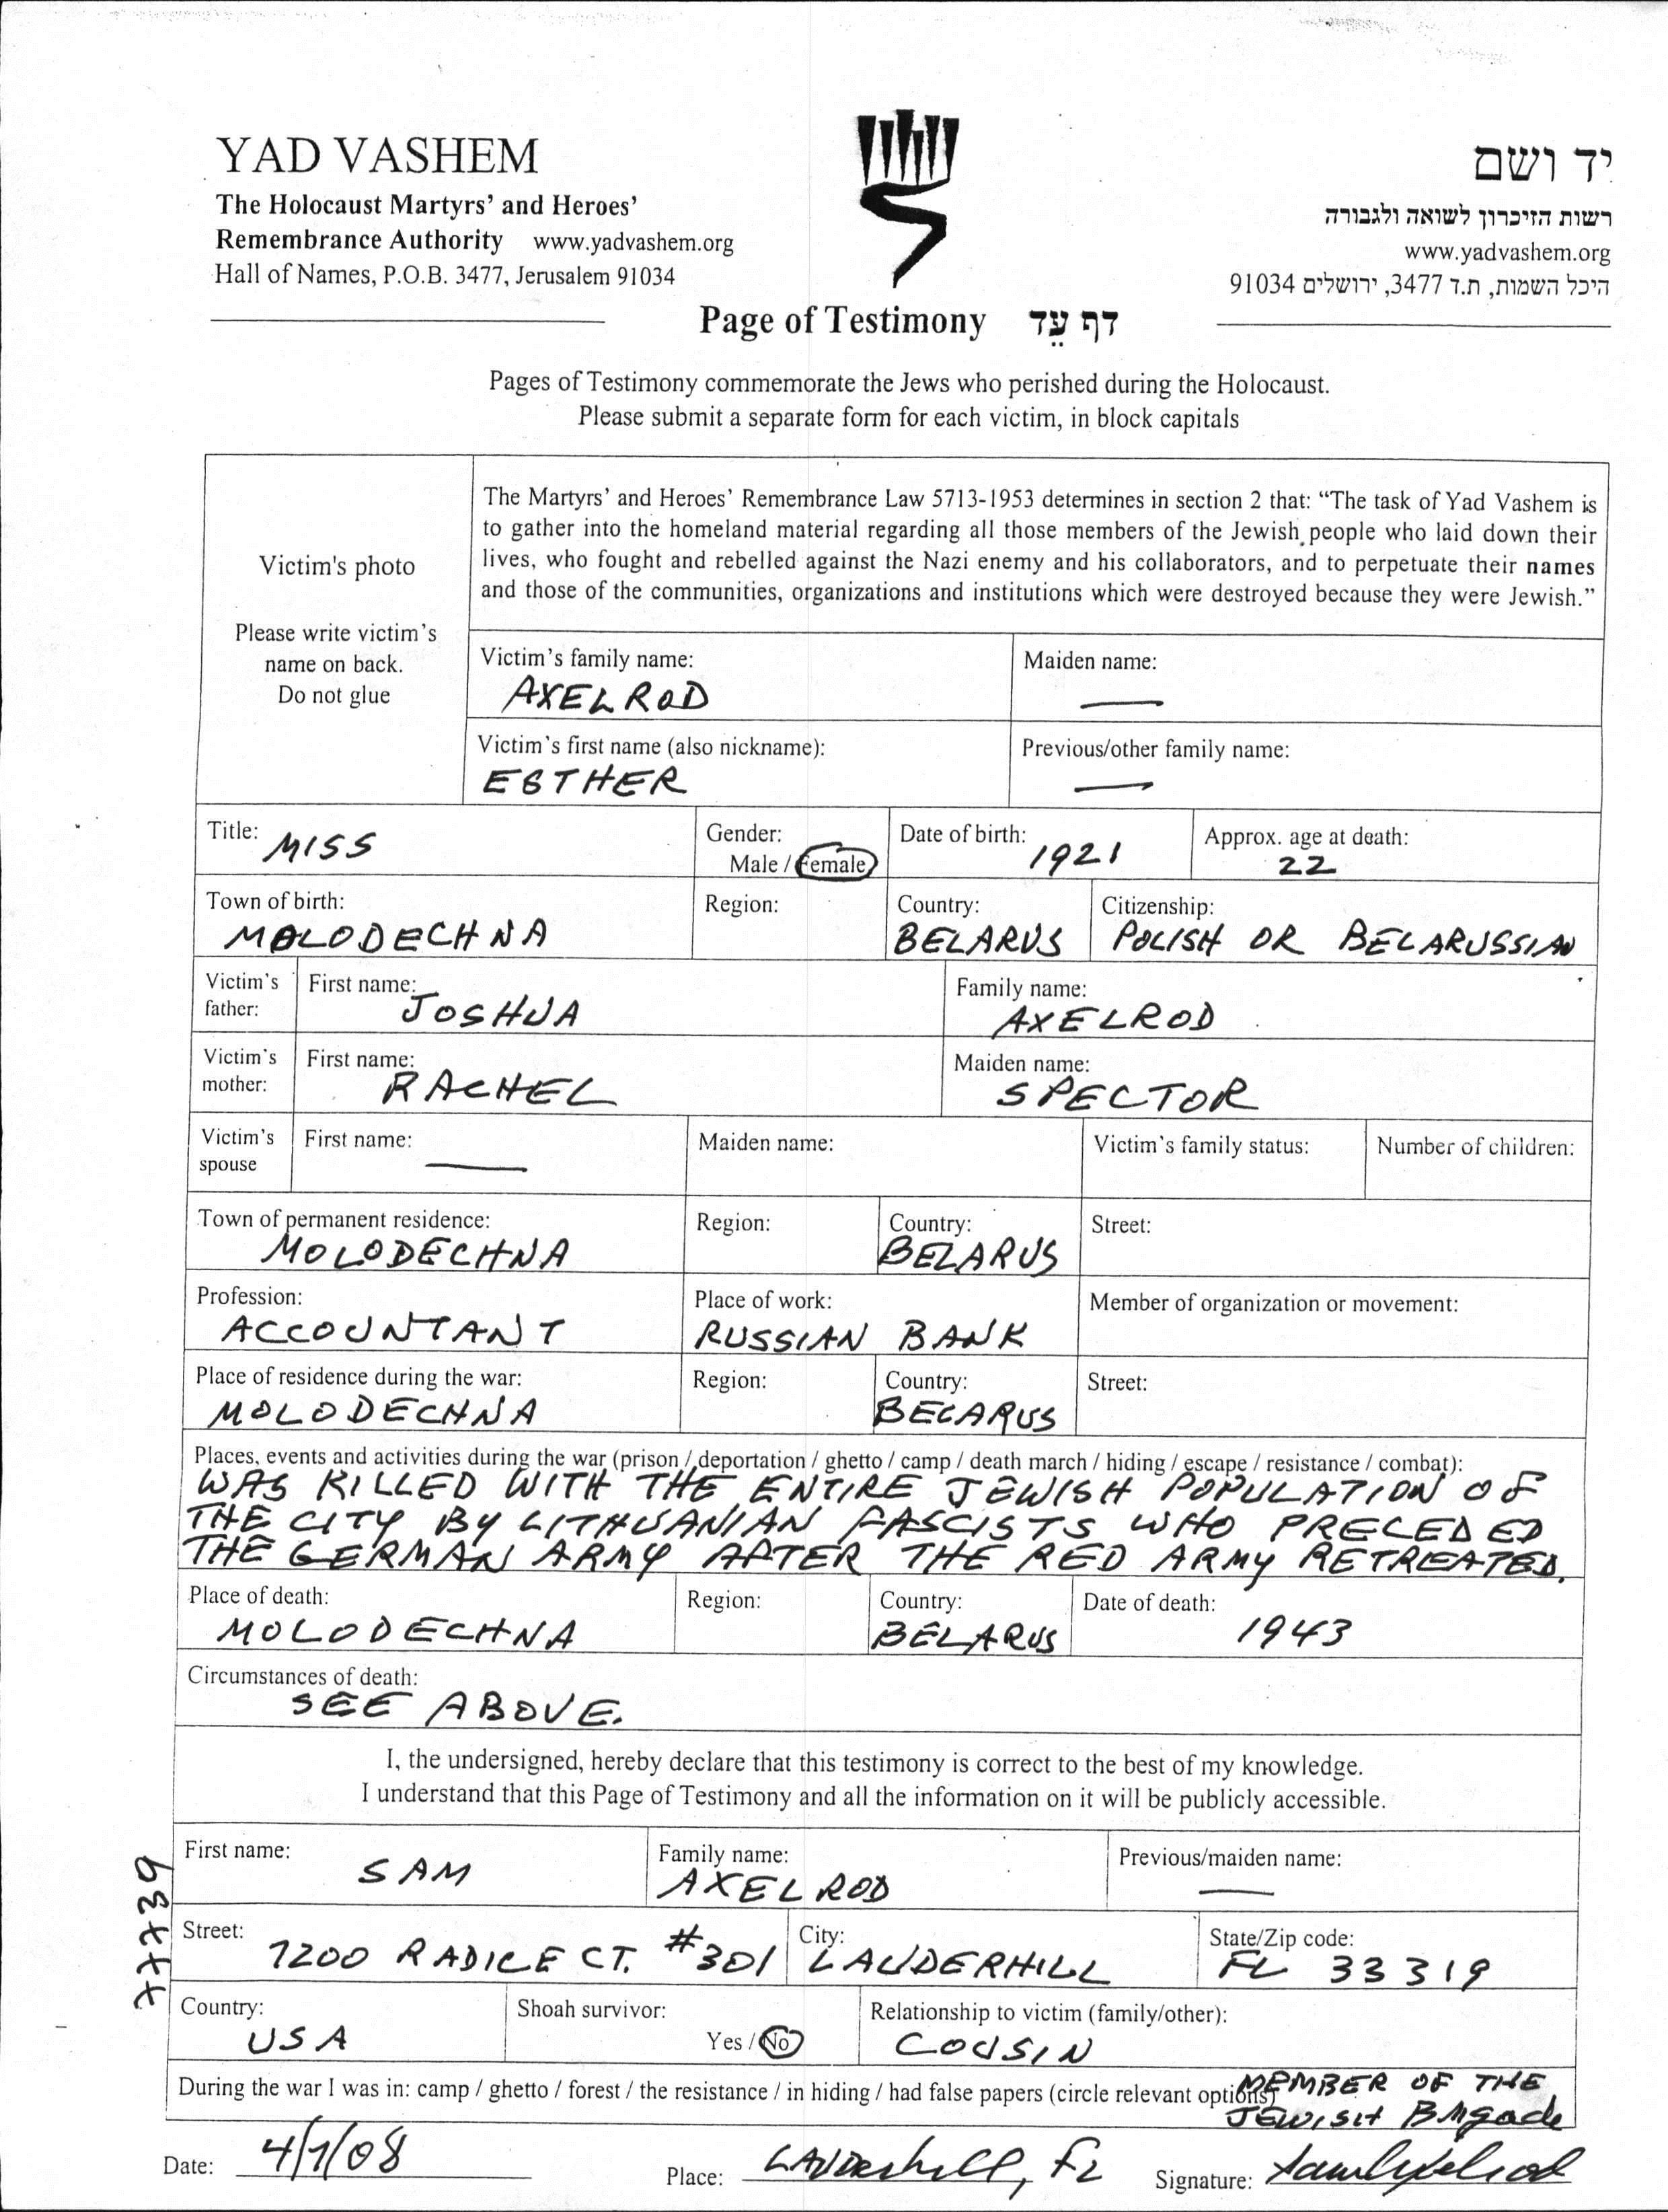 YAD VASHEM
The Holocaust Martyrs' and Heroes'
Remembrance Authority www.yadvashem.org
Hall of Names, P.O.B. 3477, Jerusalem 91034
יד ושם
רשות הזיכרון לשואה ולגבורה
www.yadvashem.org
היכל השמות, ת.ד 3477, ירושלים 91034
Page of Testimony דף עֵד
Pages of Testimony commemorate the Jews who perished during the Holocaust.
Please submit a separate form for each victim, in block capitals
Victim's photo
Please write victim's
name on back.
Do not glue
The Martyrs' and Heroes' Remembrance Law 5713-1953 determines in section 2 that: "The task of Yad Vashem is
to gather into the homeland material regarding all those members of the Jewish people who laid down their
lives, who fought and rebelled against the Nazi enemy and his collaborators, and to perpetuate their names
and those of the communities, organizations and institutions which were destroyed because they were Jewish."
Victim's family name: Maiden name:
AXELROD —
Victim's first name (also nickname): Previous/other family name:
ESTHER —
Title: MISS Gender: Male / Female Date of birth: 1921 Approx. age at death: 22
Town of birth: Region: Country: Citizenship:
MOLODECHNA BELARUS POLISH OR BELARUSSIAN
Victim's father: First name: JOSHUA Family name: AXELROD
Victim's mother: First name: RACHEL Maiden name: SPECTOR
Victim's spouse First name: — Maiden name: Victim's family status: Number of children:
Town of permanent residence: Region: Country: Street:
MOLODECHNA BELARUS
Profession: Place of work: Member of organization or movement:
ACCOUNTANT RUSSIAN BANK
Place of residence during the war: Region: Country: Street:
MOLODECHNA BELARUS
Places, events and activities during the war (prison / deportation / ghetto / camp / death march / hiding / escape / resistance / combat):
WAS KILLED WITH THE ENTIRE JEWISH POPULATION OF
THE CITY BY LITHUANIAN FASCISTS WHO PRECEDED
THE GERMAN ARMY AFTER THE RED ARMY RETREATED.
Place of death: Region: Country: Date of death:
MOLODECHNA BELARUS 1943
Circumstances of death:
SEE ABOVE.
I, the undersigned, hereby declare that this testimony is correct to the best of my knowledge.
I understand that this Page of Testimony and all the information on it will be publicly accessible.
First name: Family name: Previous/maiden name:
SAM AXELROD —
Street: City: State/Zip code:
7200 RADICE CT. #301 LAUDERHILL FL 33319
Country: Shoah survivor: Relationship to victim (family/other):
USA Yes / No COUSIN
During the war I was in: camp / ghetto / forest / the resistance / in hiding / had false papers (circle relevant options) MEMBER OF THE
JEWISH Brigade
Date: 4/1/08 Place: LAUDerhill, FL Signature: Sam Axelrod